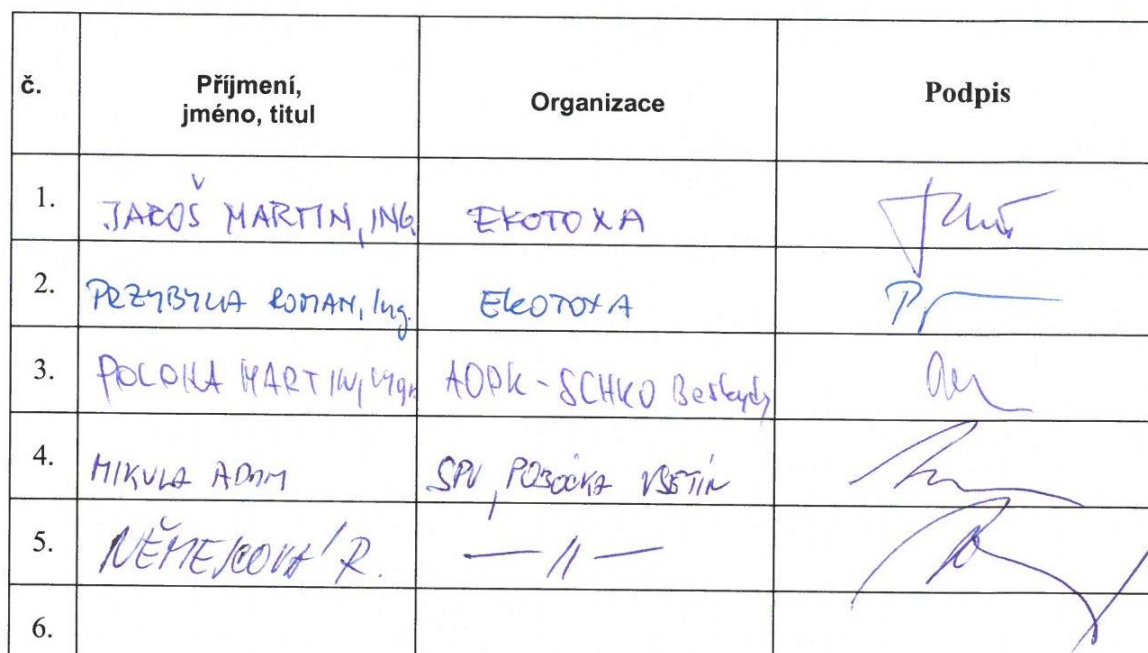 č. Příjmení, jméno, titul Organizace Podpis
1. JAROŠ MARTIN, ING. EKOTOXA
2. PRZYBYLA ROMAN, Ing. EKOTOXA
3. POLOKA MARTIN, Mgr. AOPK - SCHKO Beskydy
4. MIKULA ADAM SPU, POBOČKA VSETÍN
5. NĚMEJCOVÁ R. — 11 —
6.